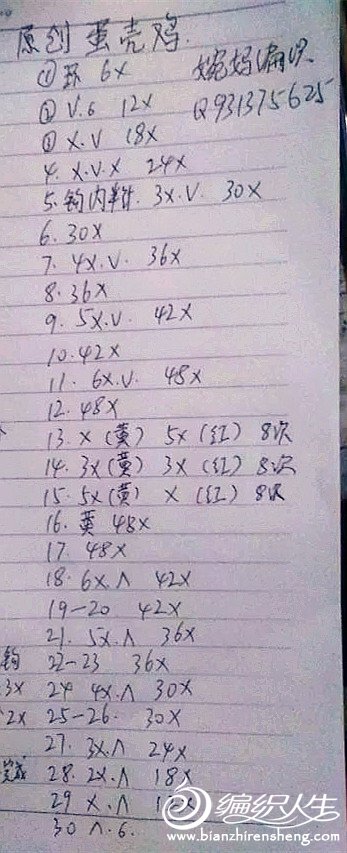 原创 蛋壳鸡.
婉妈编织
Q931375625
① 环 6X
② V.6 12X
③ X.V 18X
4. X.V.X 24X
5. 钩内半针. 3X.V. 30X
6. 30X
7. 4X.V. 36X
8. 36X
9. 5X.V. 42X
10. 42X
11. 6X.V. 48X
12. 48X
13. X(黄) 5X(红) 8次
14. 3X(黄) 3X(红) 8次
15. 5X(黄) X(红) 8次
16. 黄 48X
17. 48X
18. 6X.Λ 42X
19-20 42X
21. 5X.Λ 36X
钩 22-23 36X
3X 24 4X.Λ 30X
2X 25-26. 30X
27. 3X.Λ 24X
完成 28. 2X.Λ 18X
29 X.Λ 12X
30 Λ.6.
编织人生
www.bianzhirensheng.com